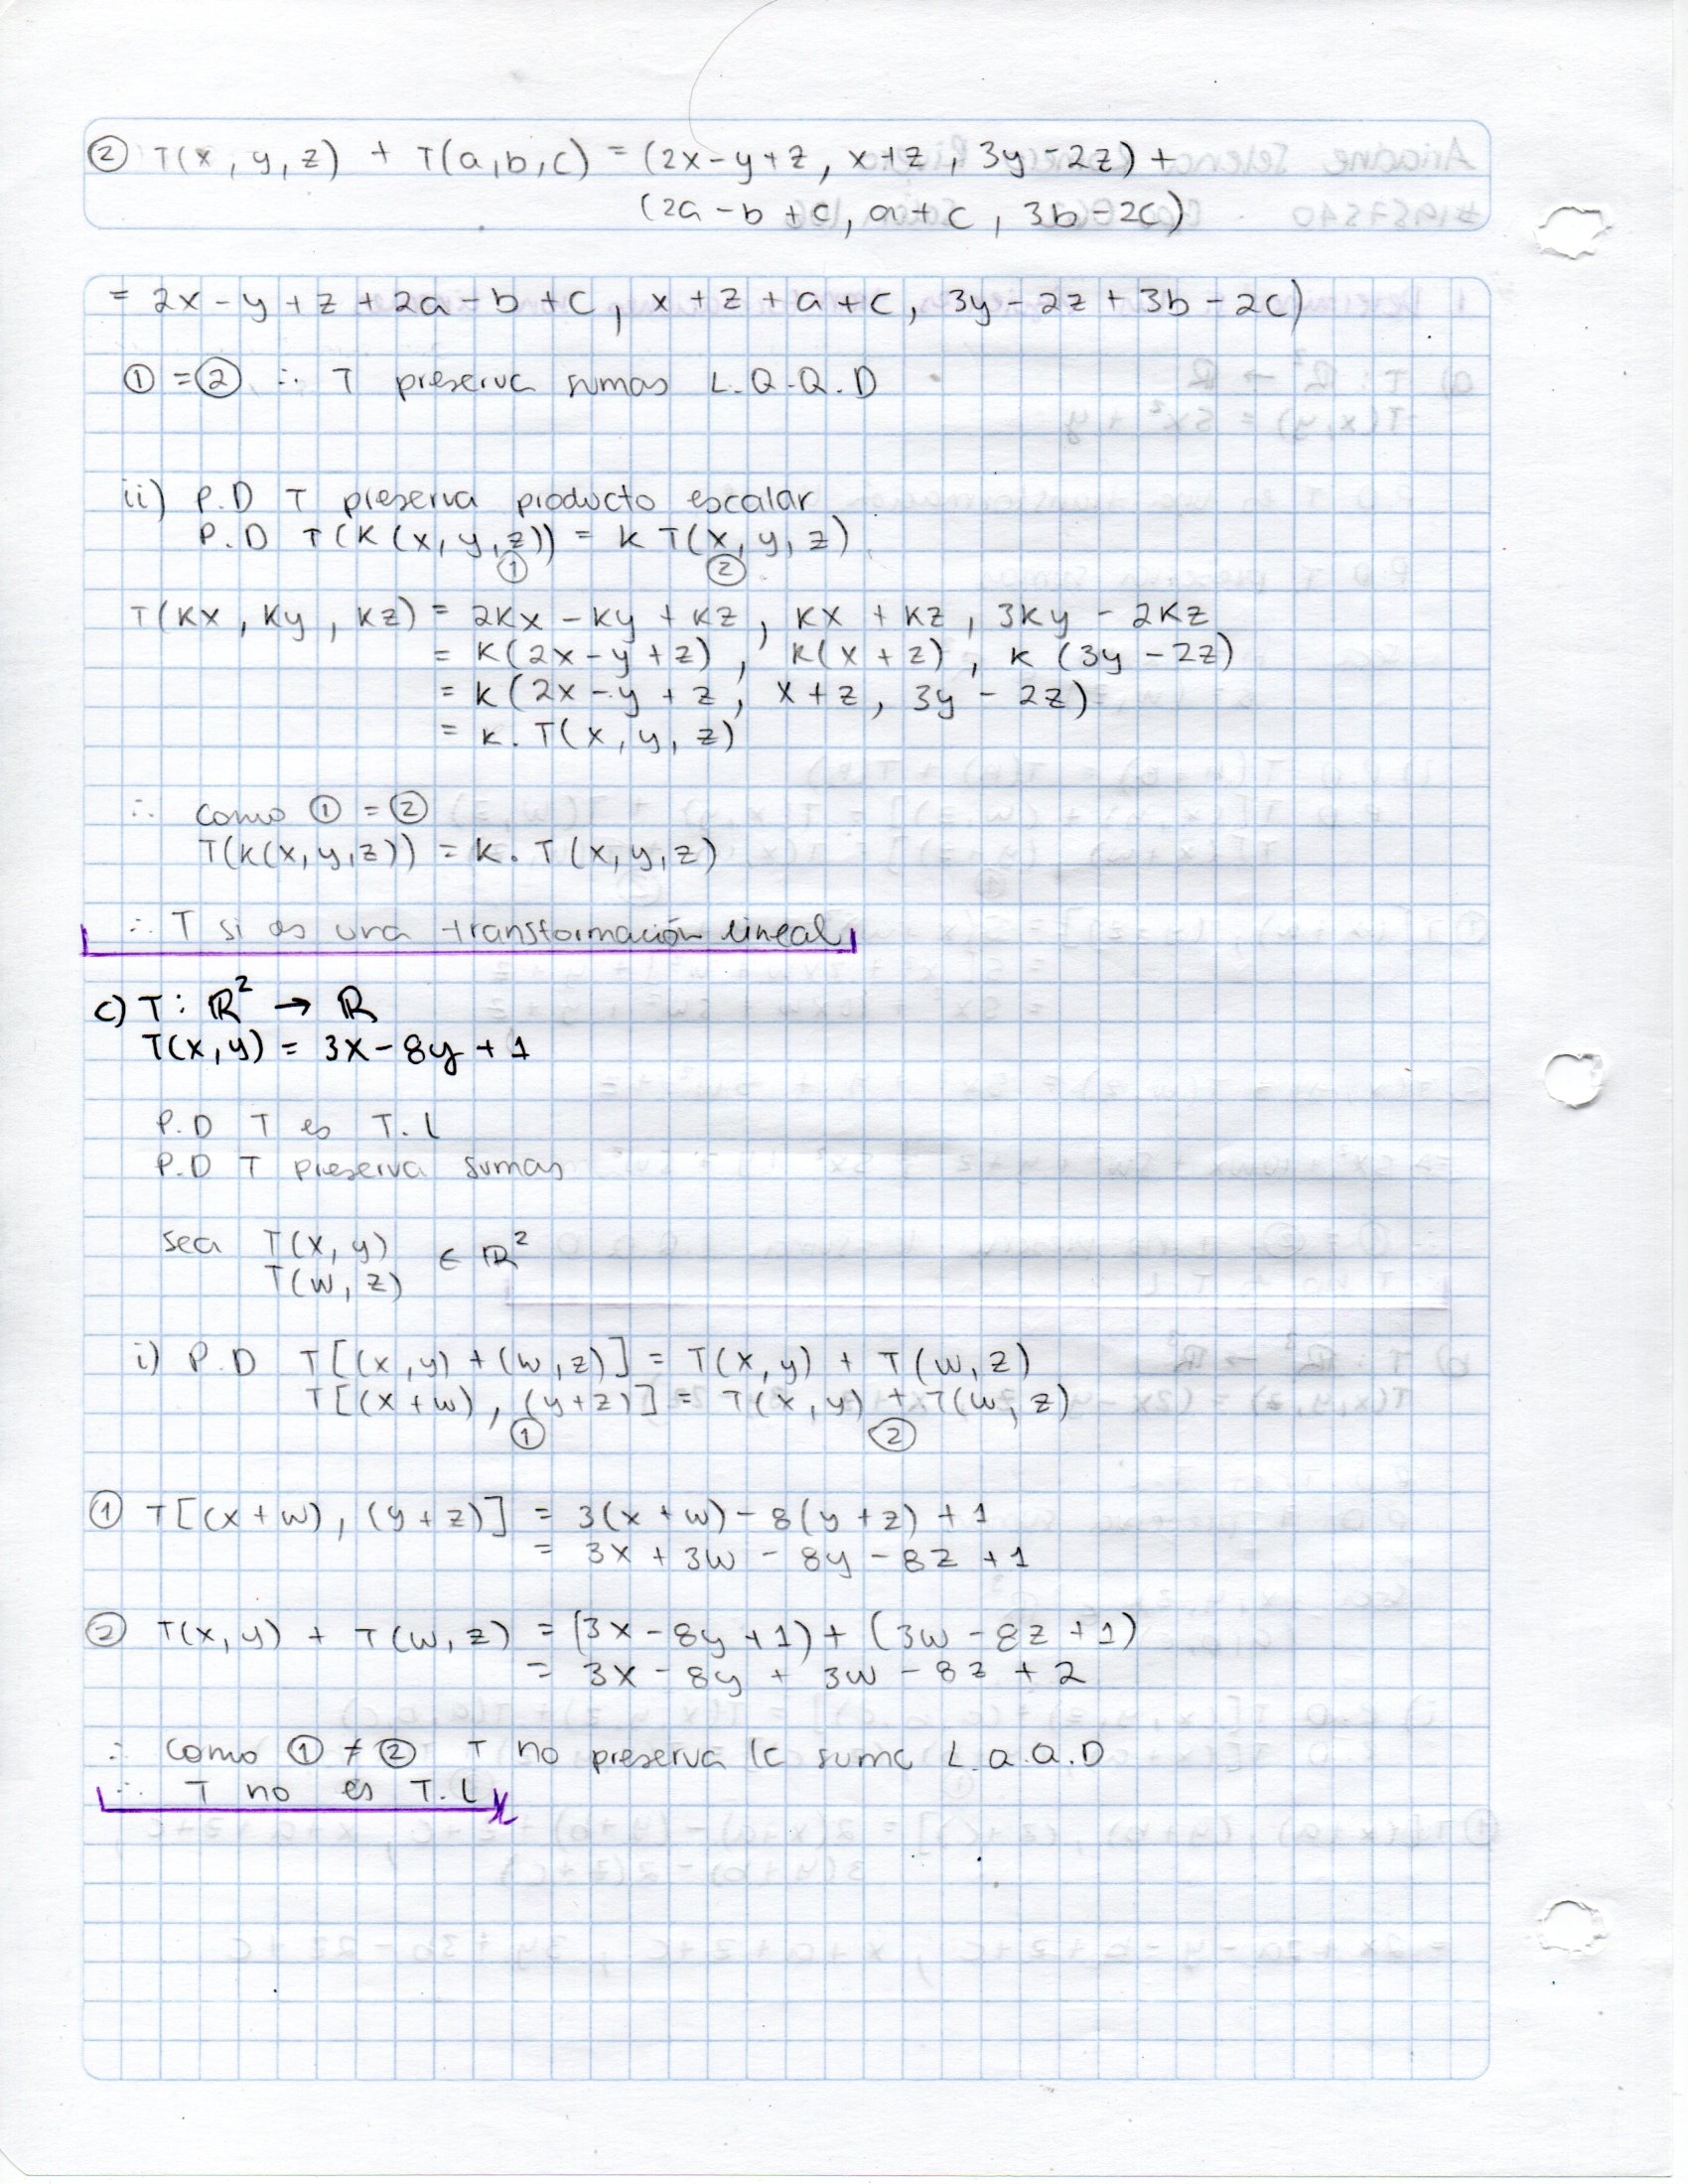 ② T(x, y, z) + T(a, b, c) = (2x - y + z, x + z, 3y - 2z) +
(2a - b + c, a + c, 3b - 2c)
= 2x - y + z + 2a - b + c, x + z + a + c, 3y - 2z + 3b - 2c)
① = ② ∴ T preserva sumas L.Q.Q.D
ii) P.D T preserva producto escalar
P.D T(K(x, y, z)) = K T(x, y, z)
① ②
T(Kx, Ky, Kz) = 2Kx - Ky + Kz, Kx + Kz, 3Ky - 2Kz
= K(2x - y + z), K(x + z), K(3y - 2z)
= K(2x - y + z, x + z, 3y - 2z)
= K. T(x, y, z)
∴ como ① = ②
T(K(x, y, z)) = K. T(x, y, z)
∴ T si es una transformación lineal
c) T: ℝ² → ℝ
T(x, y) = 3x - 8y + 1
P.D T es T.L
P.D T preserva sumas
sea T(x, y) ∈ ℝ²
T(w, z)
i) P.D T[(x, y) + (w, z)] = T(x, y) + T(w, z)
T[(x + w), (y + z)] = T(x, y) + T(w, z)
① ②
① T[(x + w), (y + z)] = 3(x + w) - 8(y + z) + 1
= 3x + 3w - 8y - 8z + 1
② T(x, y) + T(w, z) = (3x - 8y + 1) + (3w - 8z + 1)
= 3x - 8y + 3w - 8z + 2
∴ como ① ≠ ② T no preserva la suma L.Q.Q.D
∴ T no es T.L